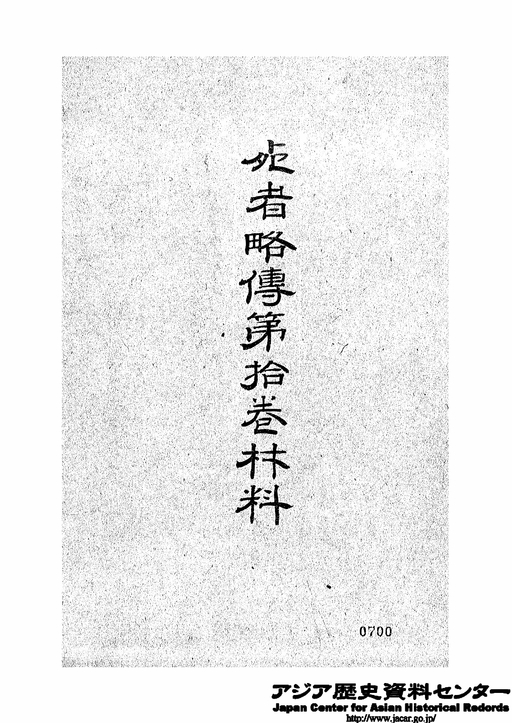 死者略傳第拾卷材料
0700
アジア歴史資料センター
Japan Center for Asian Historical Redords
http://www.jacar.go.jp/